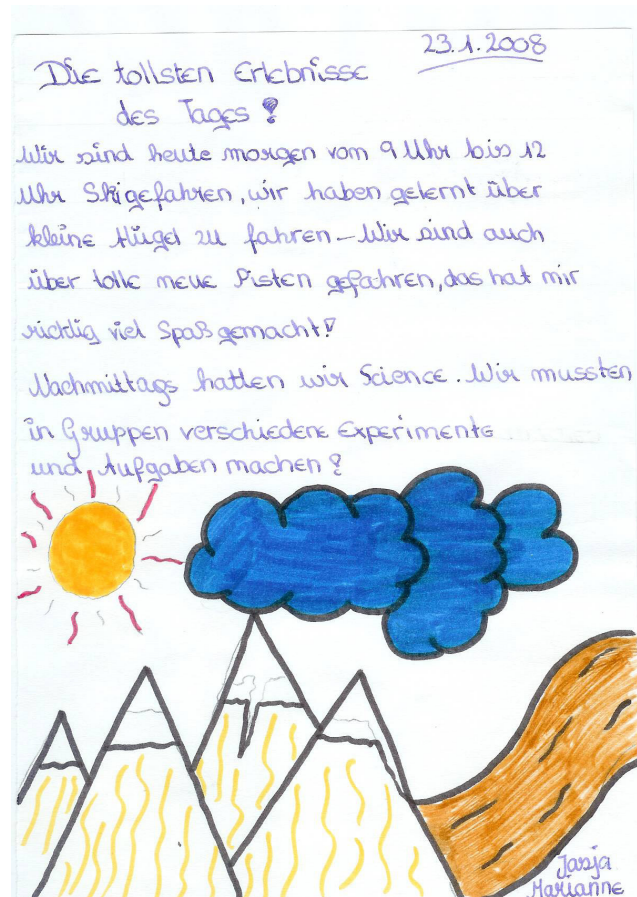 23.1.2008
Die tollsten Erlebnisse
des Tages !
Wir sind heute morgen vom 9 Uhr bis 12
Uhr Skigefahren, wir haben gelernt über
kleine Hügel zu fahren – Wir sind auch
über tolle neue Pisten gefahren, das hat mir
richtig viel Spaß gemacht!
Nachmittags hatten wir Science. Wir mussten
in Gruppen verschiedene Experimente
und Aufgaben machen !
Jasja
Marianne